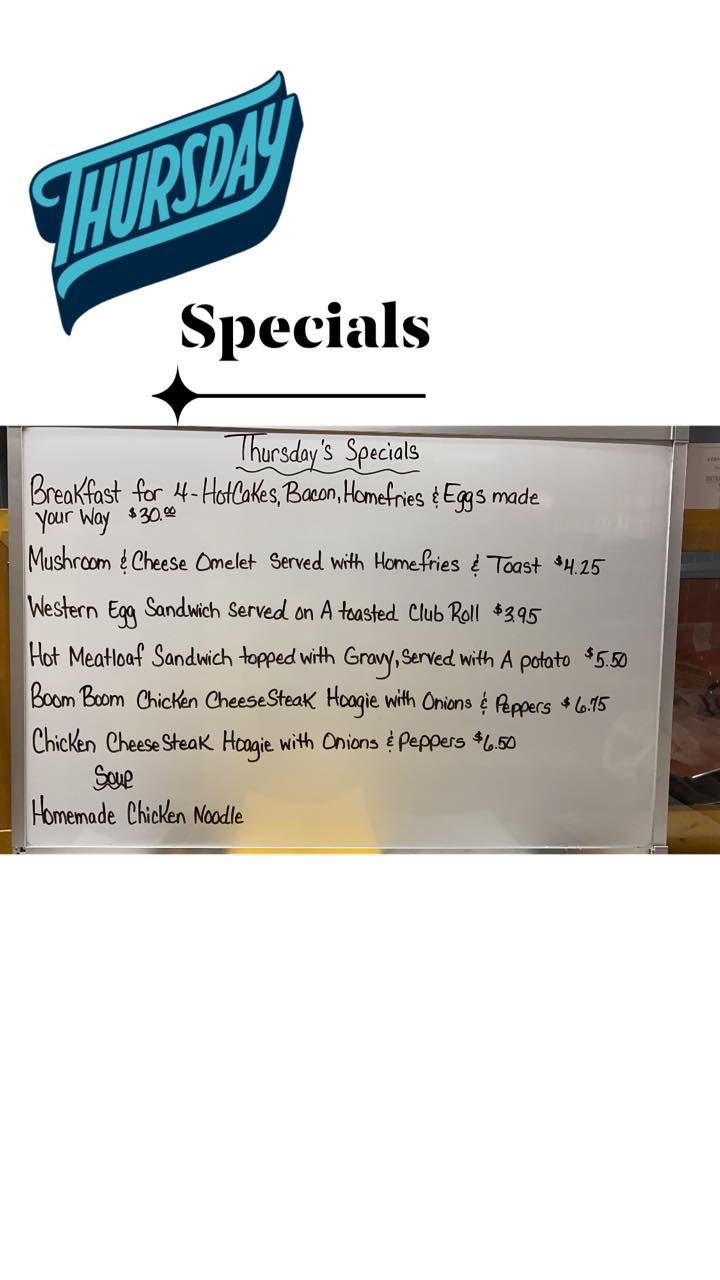 THURSDAY
Specials
Thursday's Specials
Breakfast for 4-HotCakes, Bacon, Homefries & Eggs made
your Way $30.00
Mushroom & Cheese Omelet Served with Homefries & Toast $4.25
Western Egg Sandwich Served on A toasted Club Roll $3.95
Hot Meatloaf Sandwich topped with Gravy, Served with A potato $5.50
Boom Boom Chicken CheeseSteak Hoagie with Onions & Peppers $6.75
Chicken CheeseSteak Hoagie with Onions & Peppers $6.50
Soup
Homemade Chicken Noodle